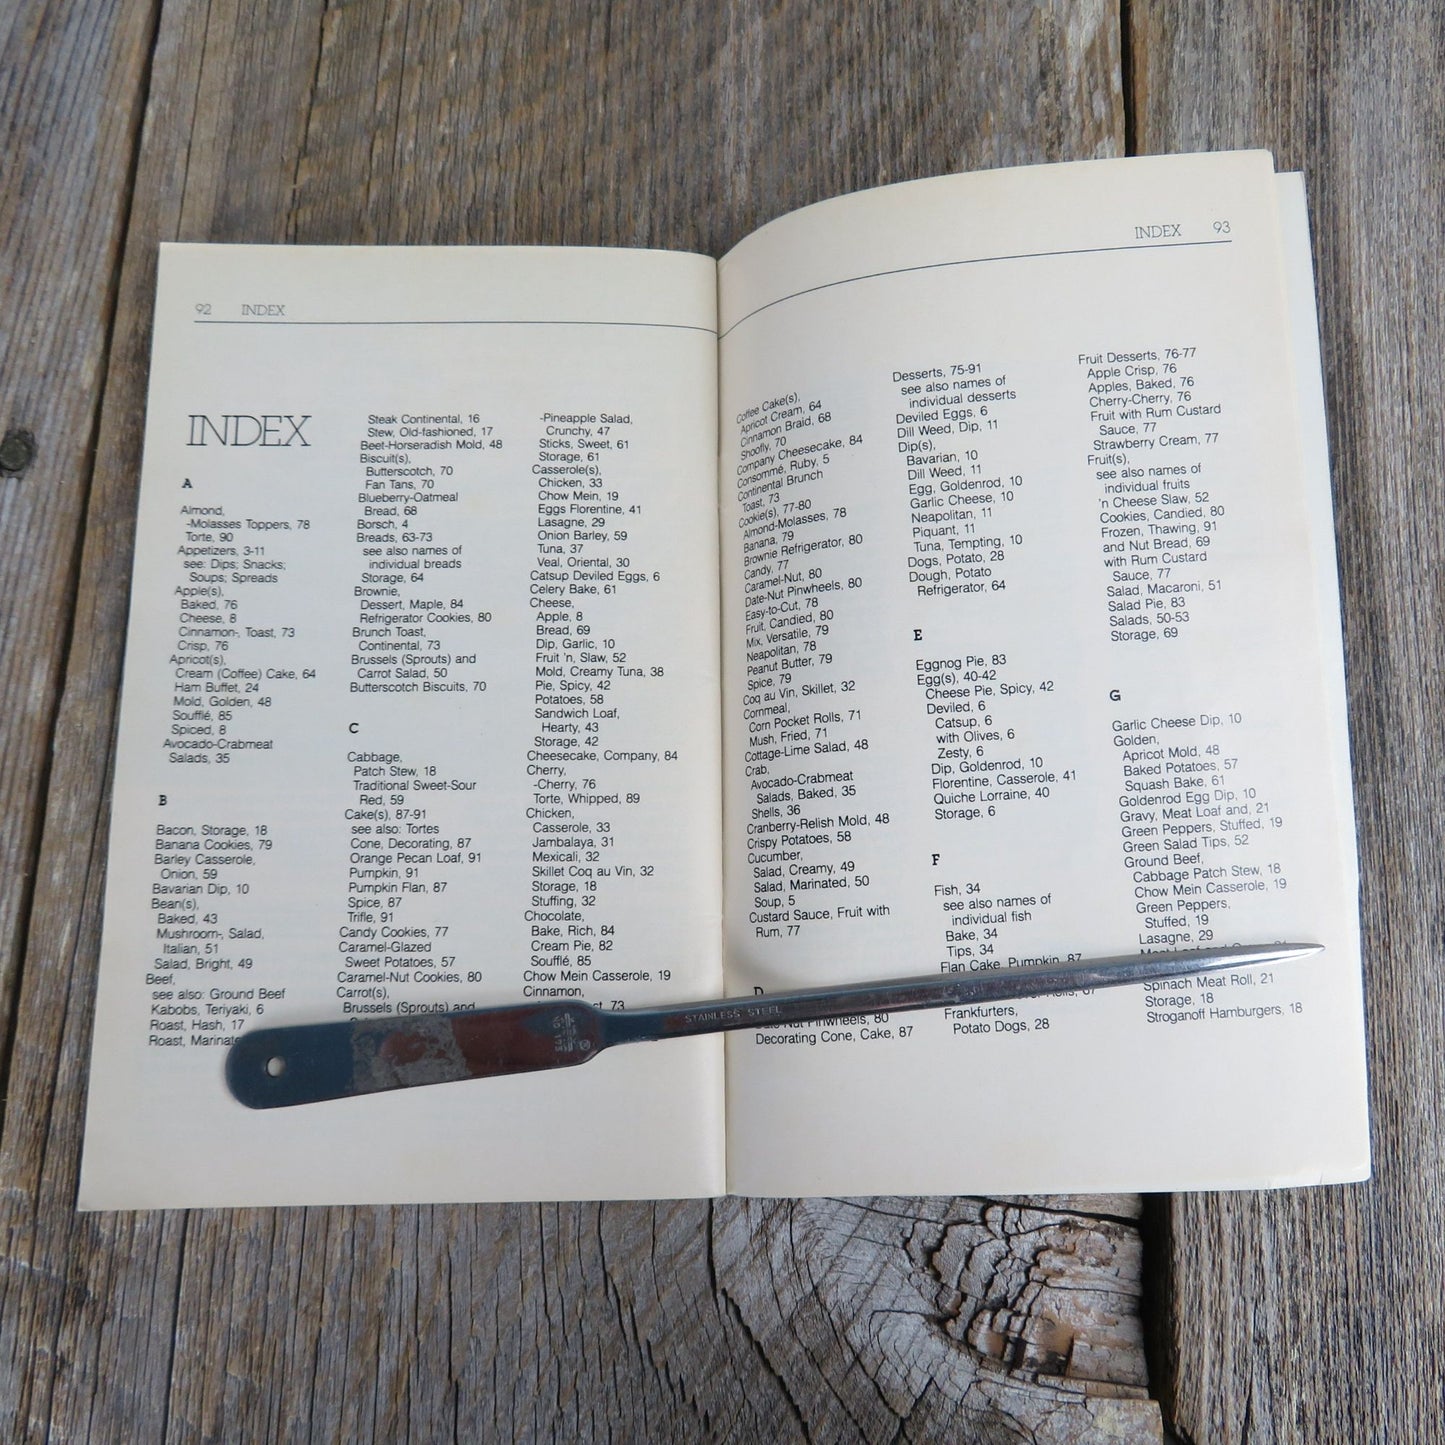 92 INDEX
INDEX
A
Almond,
-Molasses Toppers, 78
Torte, 90
Appetizers, 3-11
see: Dips; Snacks;
Soups; Spreads
Apple(s),
Baked, 76
Cheese, 8
Cinnamon-, Toast, 73
Crisp, 76
Apricot(s),
Cream (Coffee) Cake, 64
Ham Buffet, 24
Mold, Golden, 48
Soufflé, 85
Spiced, 8
Avocado-Crabmeat
Salads, 35
B
Bacon, Storage, 18
Banana Cookies, 79
Barley Casserole,
Onion, 59
Bavarian Dip, 10
Bean(s),
Baked, 43
Mushroom-, Salad,
Italian, 51
Salad, Bright, 49
Beef,
see also: Ground Beef
Kabobs, Teriyaki, 6
Roast, Hash, 17
Roast,
Steak Continental, 16
Stew, Old-fashioned, 17
Beet-Horseradish Mold, 48
Biscuit(s),
Butterscotch, 70
Fan Tans, 70
Blueberry-Oatmeal
Bread, 68
Borsch, 4
Breads, 63-73
see also names of
individual breads
Storage, 64
Brownie,
Dessert, Maple, 84
Refrigerator Cookies, 80
Brunch Toast,
Continental, 73
Brussels (Sprouts) and
Carrot Salad, 50
Butterscotch Biscuits, 70
C
Cabbage,
Patch Stew, 18
Traditional Sweet-Sour
Red, 59
Cake(s), 87-91
see also: Tortes
Cone, Decorating, 87
Orange Pecan Loaf, 91
Pumpkin, 91
Pumpkin Flan, 87
Spice, 87
Trifle, 91
Candy Cookies, 77
Caramel-Glazed
Sweet Potatoes, 57
Caramel-Nut Cookies, 80
Carrot(s),
Brussels (Sprouts) and
-Pineapple Salad,
Crunchy, 47
Sticks, Sweet, 61
Storage, 61
Casserole(s),
Chicken, 33
Chow Mein, 19
Eggs Florentine, 41
Lasagne, 29
Onion Barley, 59
Tuna, 37
Veal, Oriental, 30
Catsup Deviled Eggs, 6
Celery Bake, 61
Cheese,
Apple, 8
Bread, 69
Dip, Garlic, 10
Fruit 'n, Slaw, 52
Mold, Creamy Tuna, 38
Pie, Spicy, 42
Potatoes, 58
Sandwich Loaf,
Hearty, 43
Storage, 42
Cheesecake, Company, 84
Cherry,
-Cherry, 76
Torte, Whipped, 89
Chicken,
Casserole, 33
Jambalaya, 31
Mexicali, 32
Skillet Coq au Vin, 32
Storage, 18
Stuffing, 32
Chocolate,
Bake, Rich, 84
Cream Pie, 82
Soufflé, 85
Chow Mein Casserole, 19
Cinnamon,
73
INDEX 93
Coffee Cake(s),
Apricot Cream, 64
Cinnamon Braid, 68
Shoofly, 70
Company Cheesecake, 84
Consommé, Ruby, 5
Continental Brunch
Toast, 73
Cookie(s), 77-80
Almond-Molasses, 78
Banana, 79
Brownie Refrigerator, 80
Candy, 77
Caramel-Nut, 80
Date-Nut Pinwheels, 80
Easy-to-Cut, 78
Fruit, Candied, 80
Mix, Versatile, 79
Neapolitan, 78
Peanut Butter, 79
Spice, 79
Coq au Vin, Skillet, 32
Cornmeal,
Corn Pocket Rolls, 71
Mush, Fried, 71
Cottage-Lime Salad, 48
Crab,
Avocado-Crabmeat
Salads, Baked, 35
Shells, 36
Cranberry-Relish Mold, 48
Crispy Potatoes, 58
Cucumber,
Salad, Creamy, 49
Salad, Marinated, 50
Soup, 5
Custard Sauce, Fruit with
Rum, 77
D
Date-Nut Pinwheels, 80
Decorating Cone, Cake, 87
Desserts, 75-91
see also names of
individual desserts
Deviled Eggs, 6
Dill Weed, Dip, 11
Dip(s),
Bavarian, 10
Dill Weed, 11
Egg, Goldenrod, 10
Garlic Cheese, 10
Neapolitan, 11
Piquant, 11
Tuna, Tempting, 10
Dogs, Potato, 28
Dough, Potato
Refrigerator, 64
E
Eggnog Pie, 83
Egg(s), 40-42
Cheese Pie, Spicy, 42
Deviled, 6
Catsup, 6
with Olives, 6
Zesty, 6
Dip, Goldenrod, 10
Florentine, Casserole, 41
Quiche Lorraine, 40
Storage, 6
F
Fish, 34
see also names of
individual fish
Bake, 34
Tips, 34
Flan Cake, Pumpkin, 87
Frankfurters,
Potato Dogs, 28
Fruit Desserts, 76-77
Apple Crisp, 76
Apples, Baked, 76
Cherry-Cherry, 76
Fruit with Rum Custard
Sauce, 77
Strawberry Cream, 77
Fruit(s),
see also names of
individual fruits
'n Cheese Slaw, 52
Cookies, Candied, 80
Frozen, Thawing, 91
and Nut Bread, 69
with Rum Custard
Sauce, 77
Salad, Macaroni, 51
Salad Pie, 83
Salads, 50-53
Storage, 69
G
Garlic Cheese Dip, 10
Golden,
Apricot Mold, 48
Baked Potatoes, 57
Squash Bake, 61
Goldenrod Egg Dip, 10
Gravy, Meat Loaf and, 21
Green Peppers, Stuffed, 19
Green Salad Tips, 52
Ground Beef,
Cabbage Patch Stew, 18
Chow Mein Casserole, 19
Green Peppers,
Stuffed, 19
Lasagne, 29
Meat Loaf and
Spinach Meat Roll, 21
Storage, 18
Stroganoff Hamburgers, 18
STAINLESS STEEL